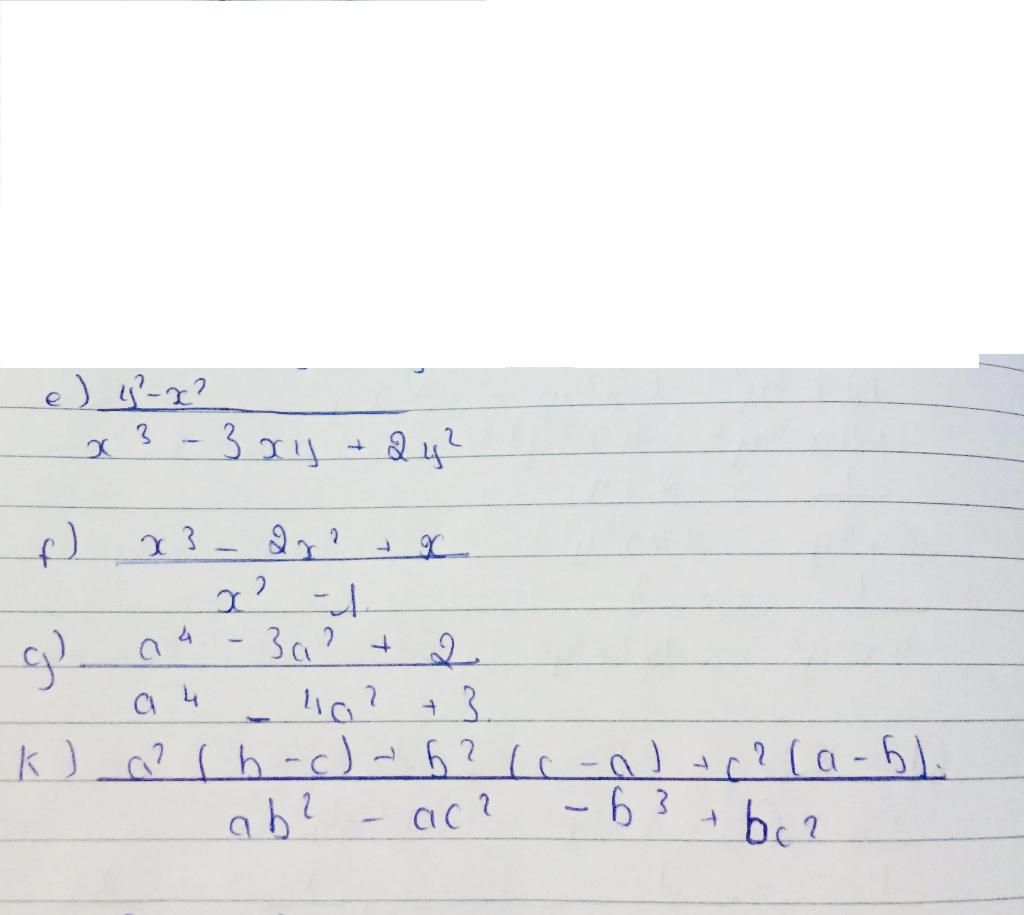 e) y² - x²
x³ - 3xy + 2y²
f) x³ - 2x² + x
x² - 1
g) a⁴ - 3a² + 2
a⁴ - 4a² + 3.
k) a² (b - c) + b² (c - a) + c² (a - b).
ab² - ac² - b³ + bc²